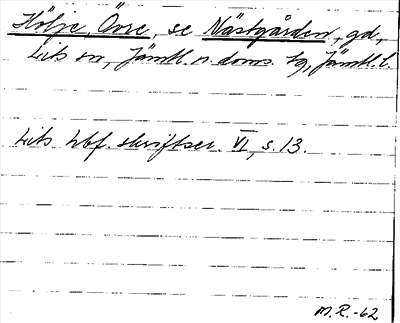 Hölje, Övre, se Nästgården, gd,
Lits sn, Jämtl. n. doms. tg, Jämtl. l.
Lits hbf. skriftser. VI, s. 13.
M.R.-62